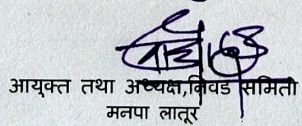 आयुक्त तथा अध्यक्ष,निवड समिती
मनपा लातूर